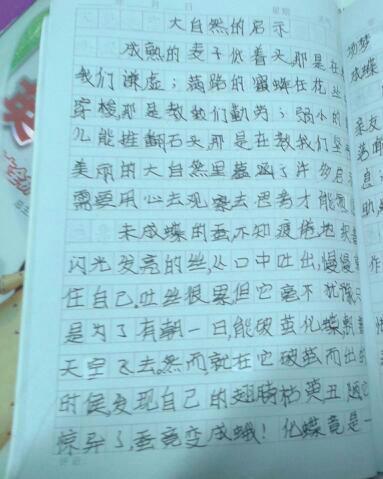 大自然的启示
成熟的麦子低着头,那是在
我们谦虚;满路的蜜蜂在花丛
穿梭,那是教我们勤劳;弱小的
儿能推翻石头,那是在教我们坚
美丽的大自然里蕴涵了许多启
需要用心去观察去思考才能
未成蝶的蚕,不知疲倦地
闪光发亮的丝,从口中吐出,慢慢
住自己.吐丝很累,但它毫不犹豫,
是为了有朝一日,能破茧化蝶,
天空飞去.然而就在它破茧而出的
时候,发现自己的翅膀枯萎丑陋,它
惊异了,蚕竟变成蛾!化蝶竟是一
梦
成蝶
亲友